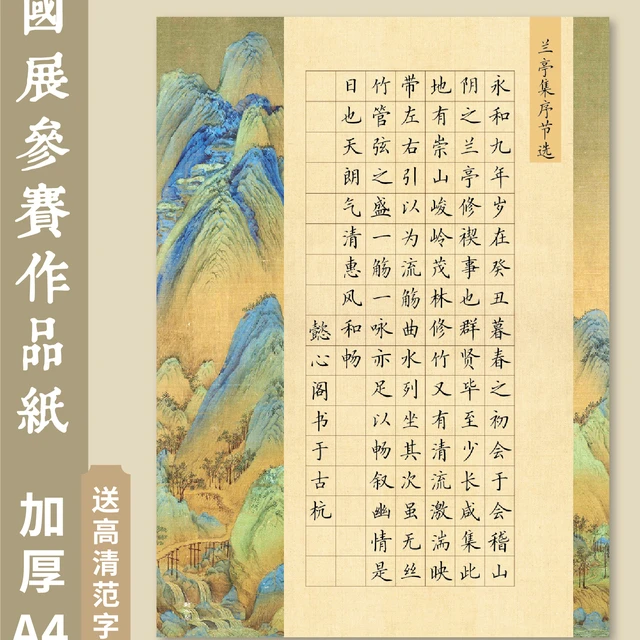 國展參賽作品紙 加厚A4
送高清范字
兰亭集序节选
永和九年岁在癸丑暮春之初会于会稽山
阴之兰亭修禊事也群贤毕至少长咸集此
地有崇山峻岭茂林修竹又有清流激湍映
带左右引以为流觞曲水列坐其次虽无丝
竹管弦之盛一觞一咏亦足以畅叙幽情是
日也天朗气清惠风和畅
懿心阁书于古杭